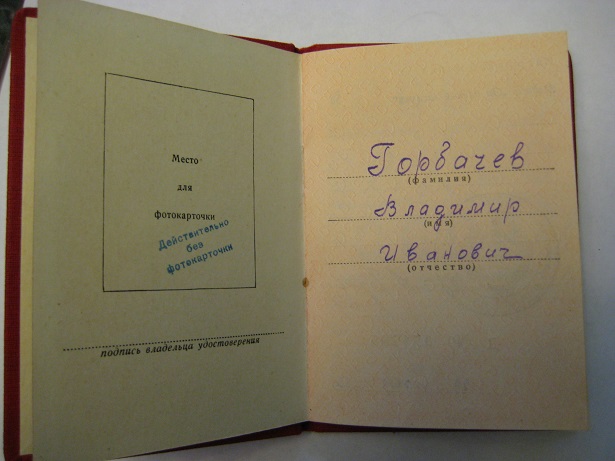 Место
для
фотокарточки
Действительно
без
фотокарточки
подпись владельца удостоверения
Горбачев
(фамилия)
Владимир
(имя)
Иванович
(отчество)